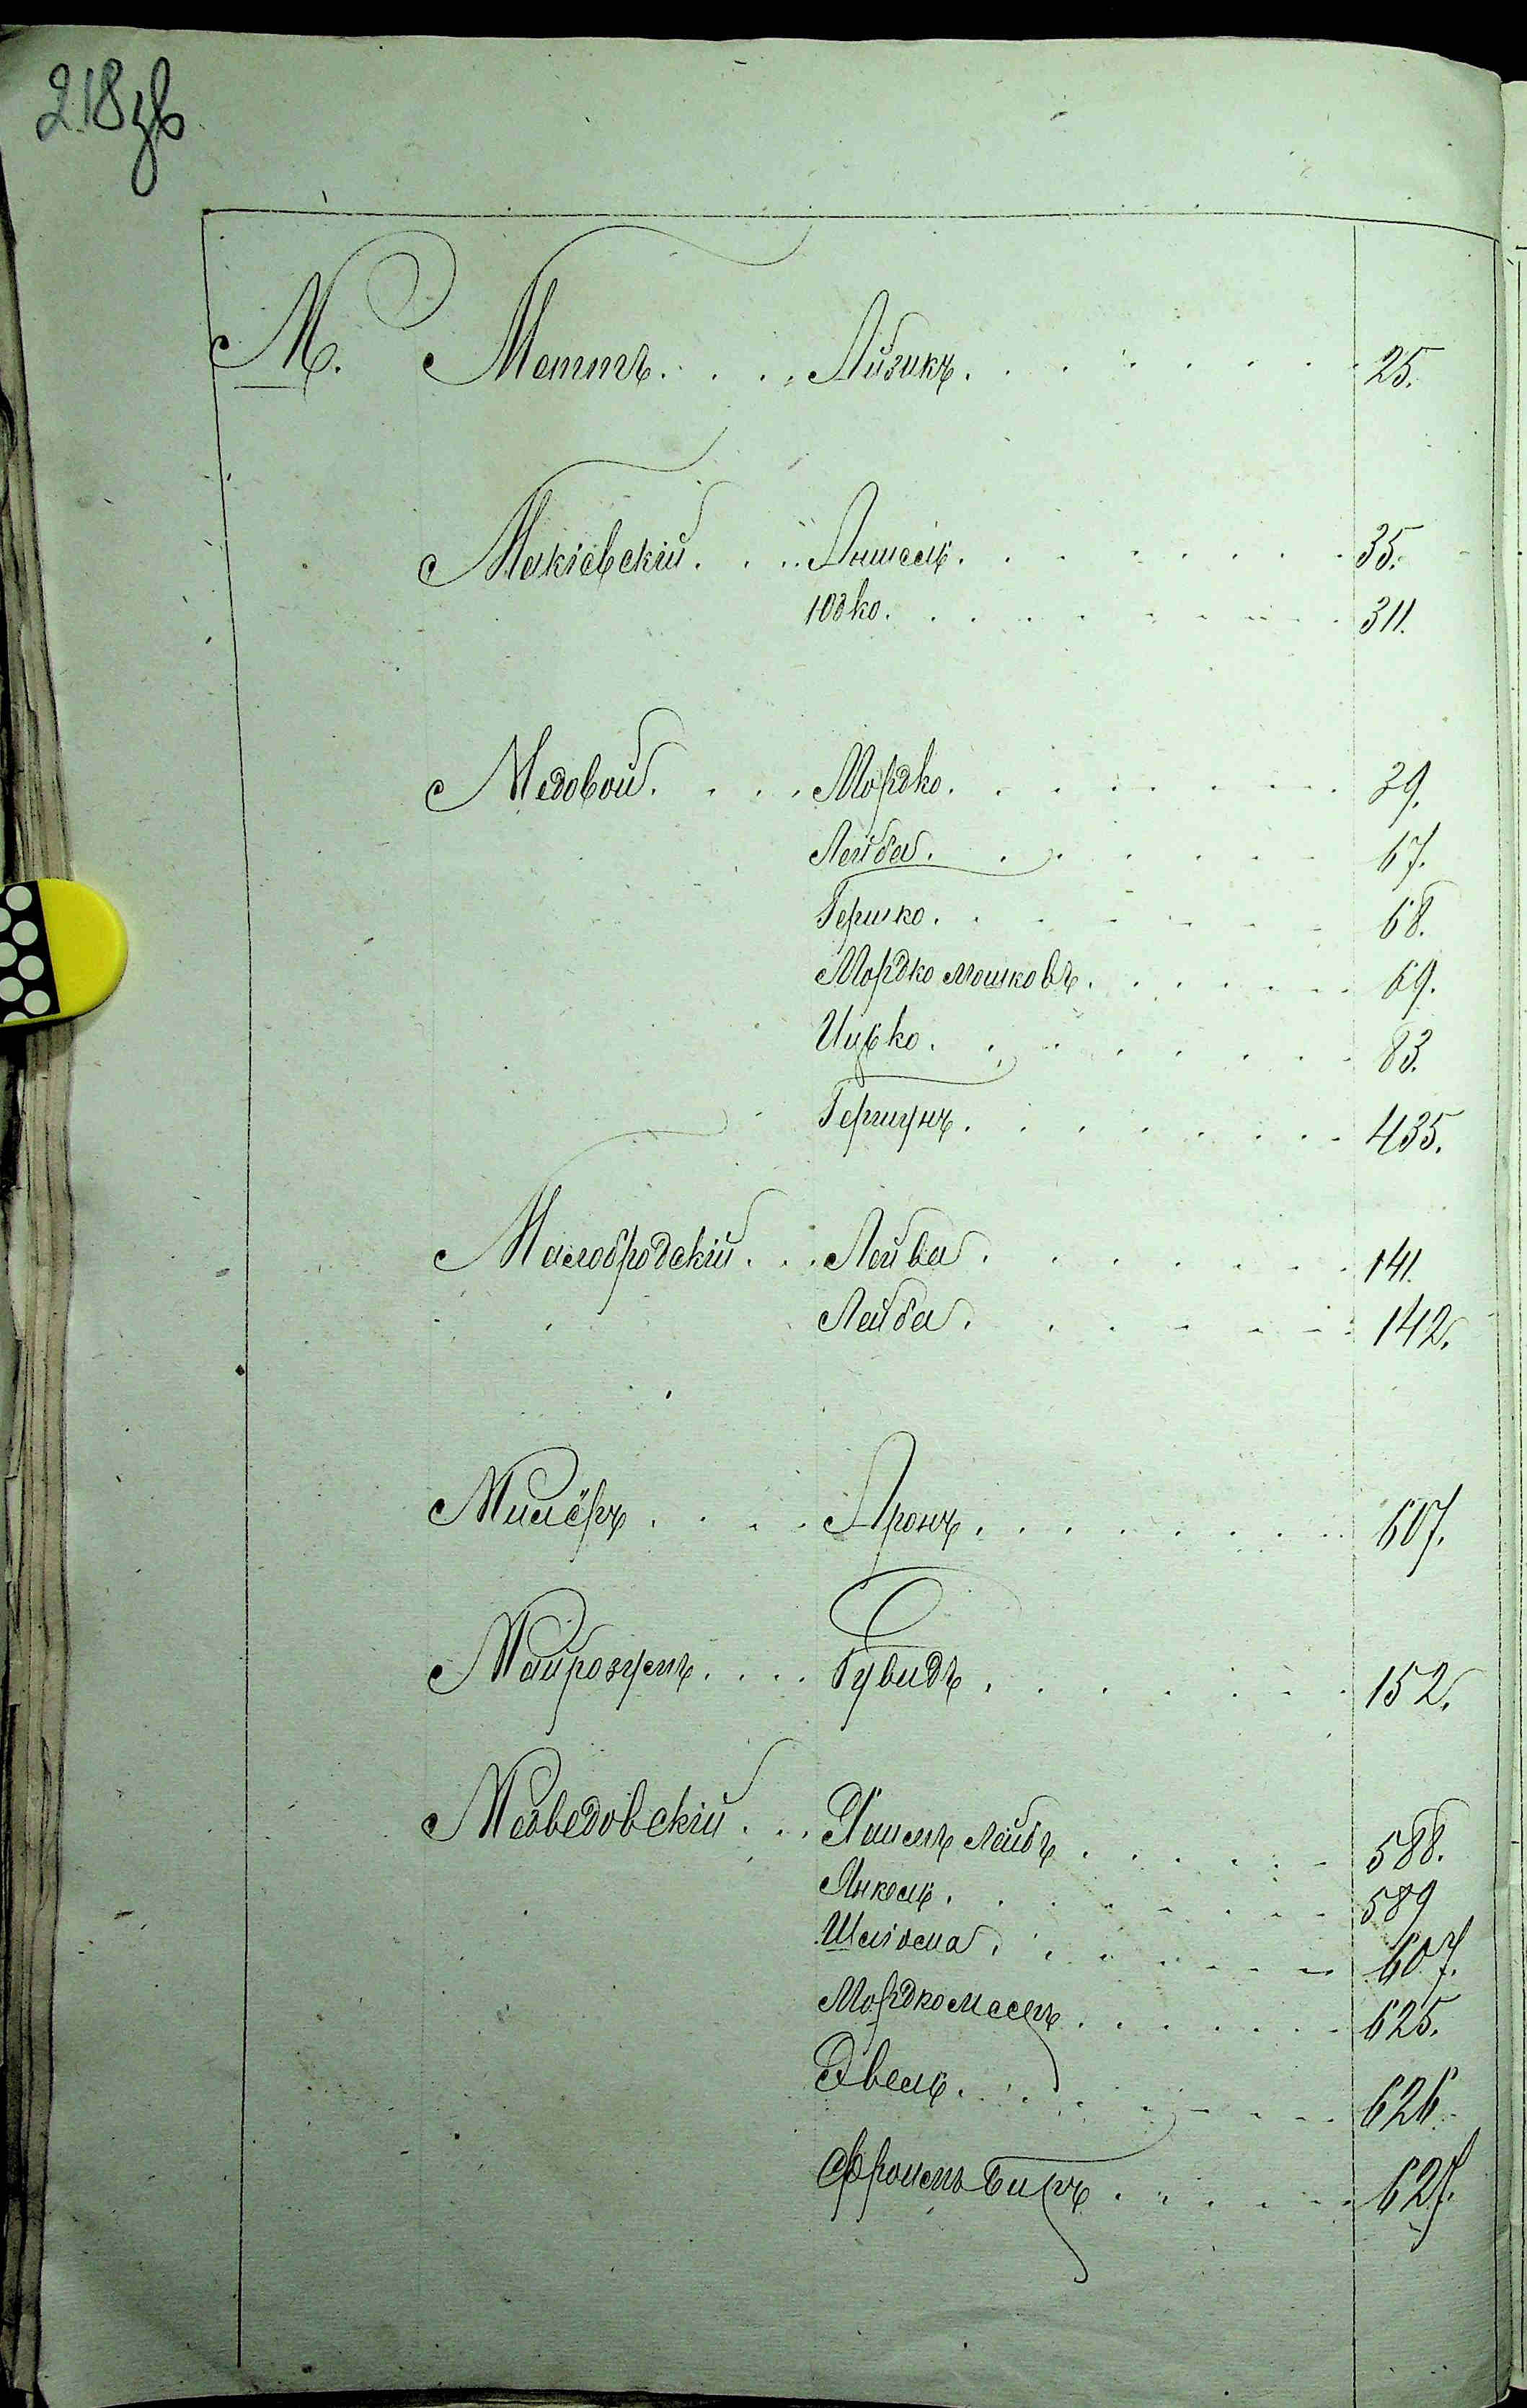 218зв
М. Меттъ. . . . Айзикъ. . . . . . . . 25.
Макіевскій. . . . Аншель. . . . . . . . 35.
Юдко. . . . . . . . . 311.
Медовой. . . . . Мордко. . . . . . . . 39.
Лейба. . . . . . . . 67.
Гершко. . . . . . . . 68.
Мордко Мошковъ. . . . . . . 69.
Ицько. . . . . . . . . 83.
Гершунъ. . . . . . . . 435.
Малобродскій. . . Лейба. . . . . . . . 141.
Лейба. . . . . . . 142.
Милёръ. . . . Аронъ. . . . . . . . 607.
Майрозумъ. . . . Гувидъ. . . . . . . 152.
Медведовскій. . . Хаимъ Лейбъ. . . . . . 588.
Янкель. . . . . . . . 589
Шлёома. . . . . . . 607.
Мордко Мееръ. . . . . . 625.
Двель. . . . . . . . 626.
Фроимъ Биръ. . . . . 627.